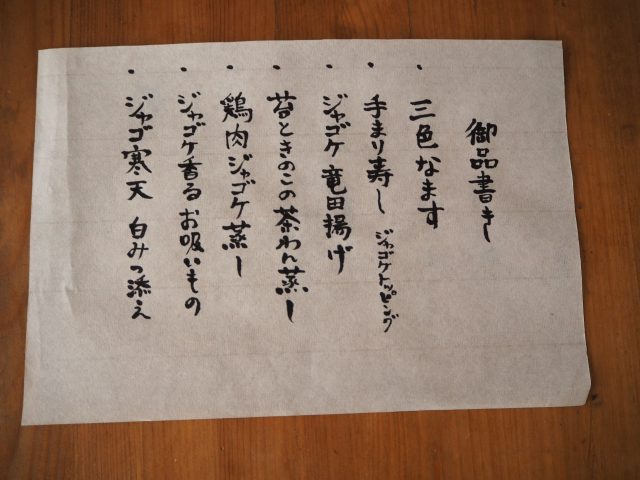 御品書き
・三色なます
・手まり寿し ジャゴケトッピング
ジャゴケ竜田揚げ
・苔ときのこの茶わん蒸し
・鶏肉ジャゴケ蒸し
・ジャゴケ香るお吸いもの
・ジャゴ寒天 白みつ添え